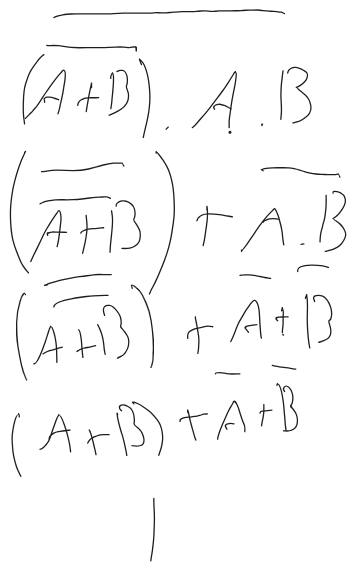 $\overline{(\overline{A+B}) . A . B}$
$(\overline{\overline{A+B}}) + \overline{A.B}$
$(\overline{\overline{A+B}}) + \overline{A}+\overline{B}$
$(A+B) + \overline{A}+\overline{B}$
1